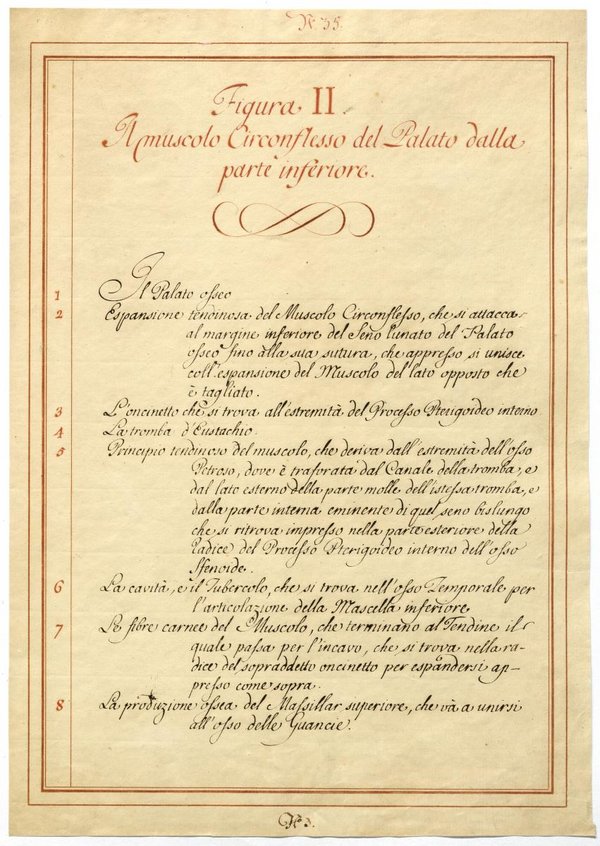 Nº 35.
Figura II
Il muscolo Circonflesso del Palato dalla
parte inferiore.
1 Il Palato osseo
2 Espansione tendinosa del Muscolo Circonflesso, che si attacca
al margine inferiore del Seno lunato del Palato
osseo fino alla sua sutura, che appresso si unisce
coll'espansione del Muscolo del lato opposto che
è tagliato.
3 L'oncinetto che si trova all'estremità del Processo Pterigoideo interno
4 La tromba d'Eustachio.
5 Principio tendinoso del muscolo, che deriva dall'estremità dell'osso
Petroso, dove è traforata dal Canale della tromba, e
dal lato esterno della parte molle dell'istessa tromba, e
dalla parte interna eminente di quel seno bislungo
che si ritrova impresso nella parte esteriore della
radice del Processo Pterigoideo interno dell'osso
Sfenoide.
6 La cavità, e il Tubercolo, che si trova nell'osso Temporale per
l'articolazione della Mascella inferiore
7 Le fibre carnee del Muscolo, che terminano al Tendine il
quale passa per l'incavo, che si trova nella ra-
dice del sopraddetto oncinetto per espandersi ap-
presso come sopra.
8 La produzione ossea del Massillar superiore, che và a unirsi
all'osso delle Guancie.
Nº 3.